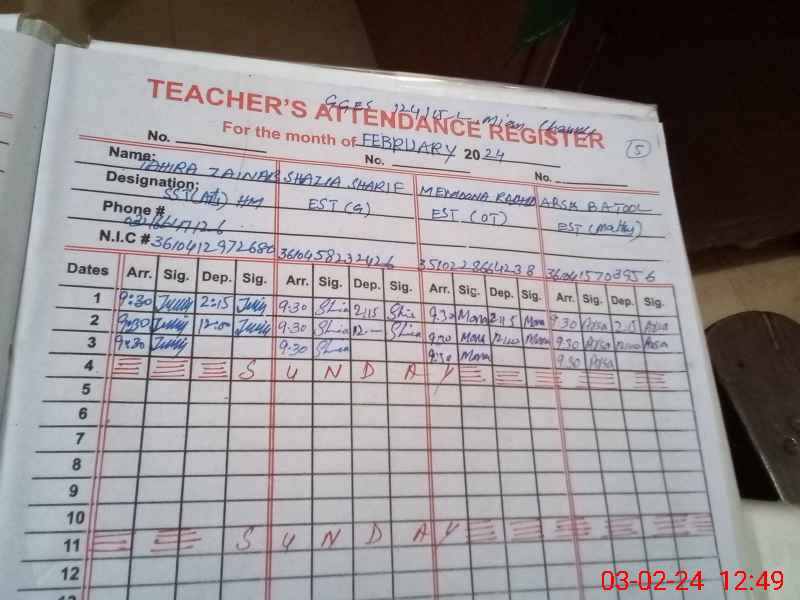 GGES 124/15-L Mian Channu
TEACHER'S ATTENDANCE REGISTER
For the month of FEBRUARY 2024 5
No. No. No.
Name: TAHIRA ZAINAB SHAZIA SHARIF MEMOONA RASHID ARSA BATOOL
Designation: SST(Arts) HM EST (G) EST (OT) EST (Math)
Phone #
N.I.C # 3610412972680 3610458232426 3510228664238 3610415703956
Dates Arr. Sig. Dep. Sig. Arr. Sig. Dep. Sig. Arr. Sig. Dep. Sig. Arr. Sig. Dep. Sig.
1 9:30 2:15 9.30 Shia 2:15 Shia 9.30 Mona 2:15 Mona 9.30 Arsa 2:15 Arsa
2 9:30 12:00 9.30 Shia 12.— Shia 9.30 Mona 12:00 Mona 9.30 Arsa 12:00 Arsa
3 9:30 9.30 Shia 9.30 Mona 9.30 Arsa
4 S U N D A Y
5
6
7
8
9
10
11 S U N D A Y
12
03-02-24 12:49